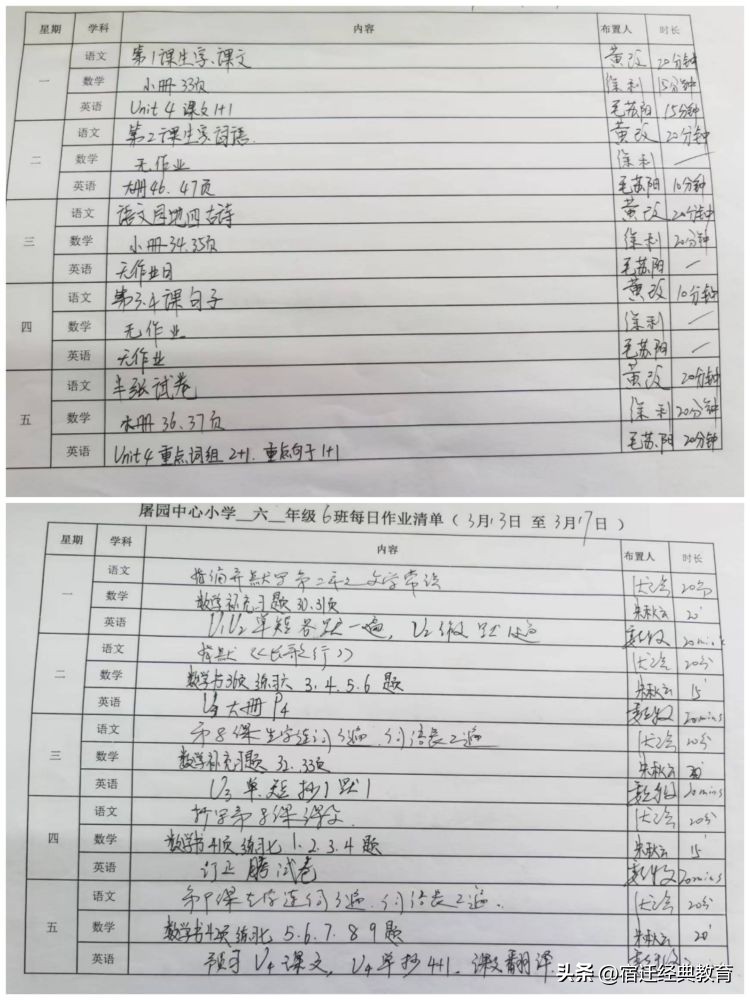 星期 学科 内容 布置人 时长
一 语文 第1课生字、课文 黄改 20分钟
数学 小册33页 徐利 15分钟
英语 Unit 4 课文1+1 毛苏阳 15分钟
二 语文 第2课生字词语. 黄改 20分钟
数学 无作业 徐利 —
英语 大册46、47页 毛苏阳 10分钟
三 语文 语文园地四古诗 黄改 20分钟
数学 小册34.35页 徐利 20分钟
英语 无作业日 毛苏阳 —
四 语文 第3.4课句子 黄改 10分钟
数学 无作业 徐利 —
英语 无作业 毛苏阳 —
五 语文 半张试卷 黄改 20分钟
数学 册36.37页 徐利 20分钟
英语 Unit 4 重点词组 2+1. 重点句子1+1 毛苏阳 20分钟
屠园中心小学__六__年级6班每日作业清单（3月13日 至 3月17日）
星期 学科 内容 布置人 时长
一 语文 文学常识 20分
数学 数学补充习题30.31页 朱秋云 20'
英语 U1U2单短各默一遍, U2
二 语文 《长歌行》 20分
数学 数学书36页练习六 3.4.5.6题 朱秋云 15'
英语 大册P4 20mins
三 语文 第8课生字组词
数学 数学补充习题 32.33页 朱秋云 20'
英语 U3单.短抄1默1 20mins
四 语文 第8课课文. 20分
数学 数学书41页练习七 1.2.3.4题 朱秋云 15'
英语 订正 试卷 20mins
五 语文 20分
数学 数学书42页练习七 5.6.7.8 9题 朱秋云 20'
英语 预习U4课文, U4单抄4+1. 课文翻译
头条@宿迁经典教育